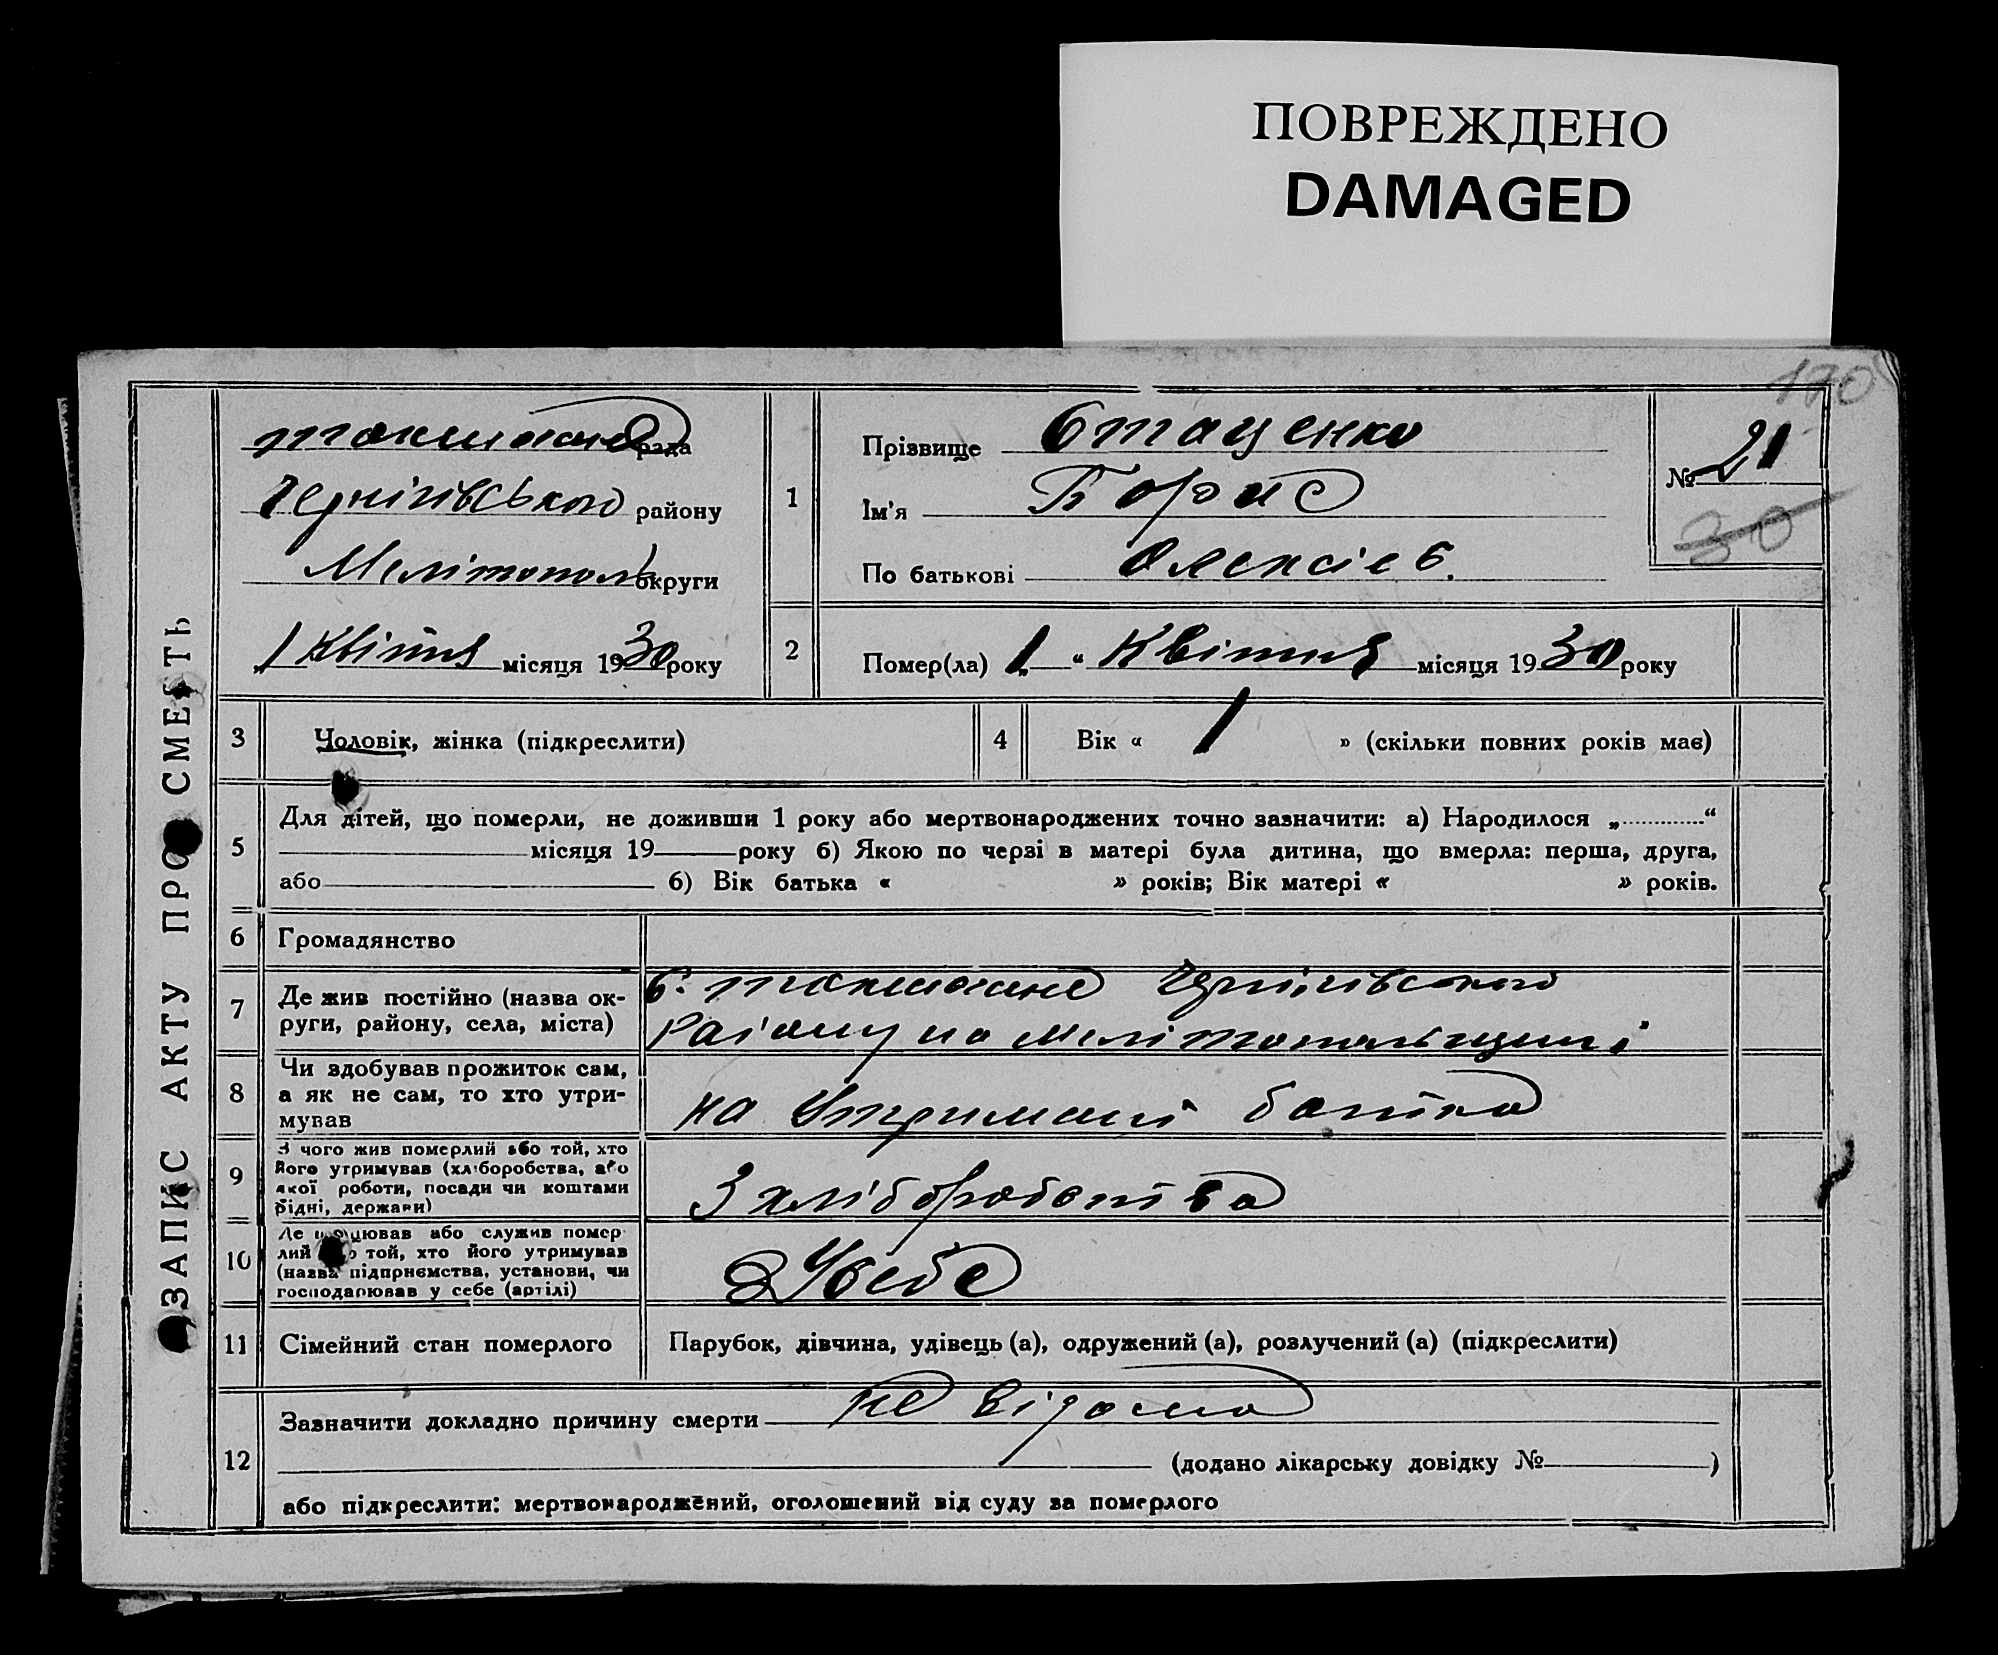 ПОВРЕЖДЕНО
DAMAGED
170
ЗАПИС АКТУ ПРО СМЕРТЬ
рада
Чернігівського району
Мелітополь округи
„1 Квітня місяця 1930 року
1
Прізвище Стаценко
Ім'я Борис
По батькові Олексієв.
№ 21
30
2
Помер(ла) „1“ Квітня місяця 1930 року
3
Чоловік, жінка (підкреслити)
4
Вік « 1 » (скільки повних років має)
5
Для дітей, що померли, не доживши 1 року або мертвонароджених точно зазначити: а) Народилося „............“
місяця 19 року б) Якою по черзі в матері була дитина, що вмерла: перша, друга,
або б) Вік батька « » років; Вік матері « » років.
6
Громадянство
7
Де жив постійно (назва ок-
руги, району, села, міста)
с. Токмачане Чернігівського
Району на Мелітопольщині
8
Чи здобував прожиток сам,
а як не сам, то хто утри-
мував
на Утриманні батька
9
З чого жив померлий або той, хто
його утримував (хліборобства, або
якої роботи, посади чи коштами
рідні, держави)
З хліборобства
10
Де працював або служив помер-
лий або той, хто його утримував
(назва підприємства, установи, чи
господарював у себе (артілі)
У себе
11
Сімейний стан померлого
Парубок, дівчина, удівець (а), одружений (а), розлучений (а) (підкреслити)
12
Зазначити докладно причину смерти не відома
(додано лікарську довідку № )
або підкреслити: мертвонароджений, оголошений від суду за померлого